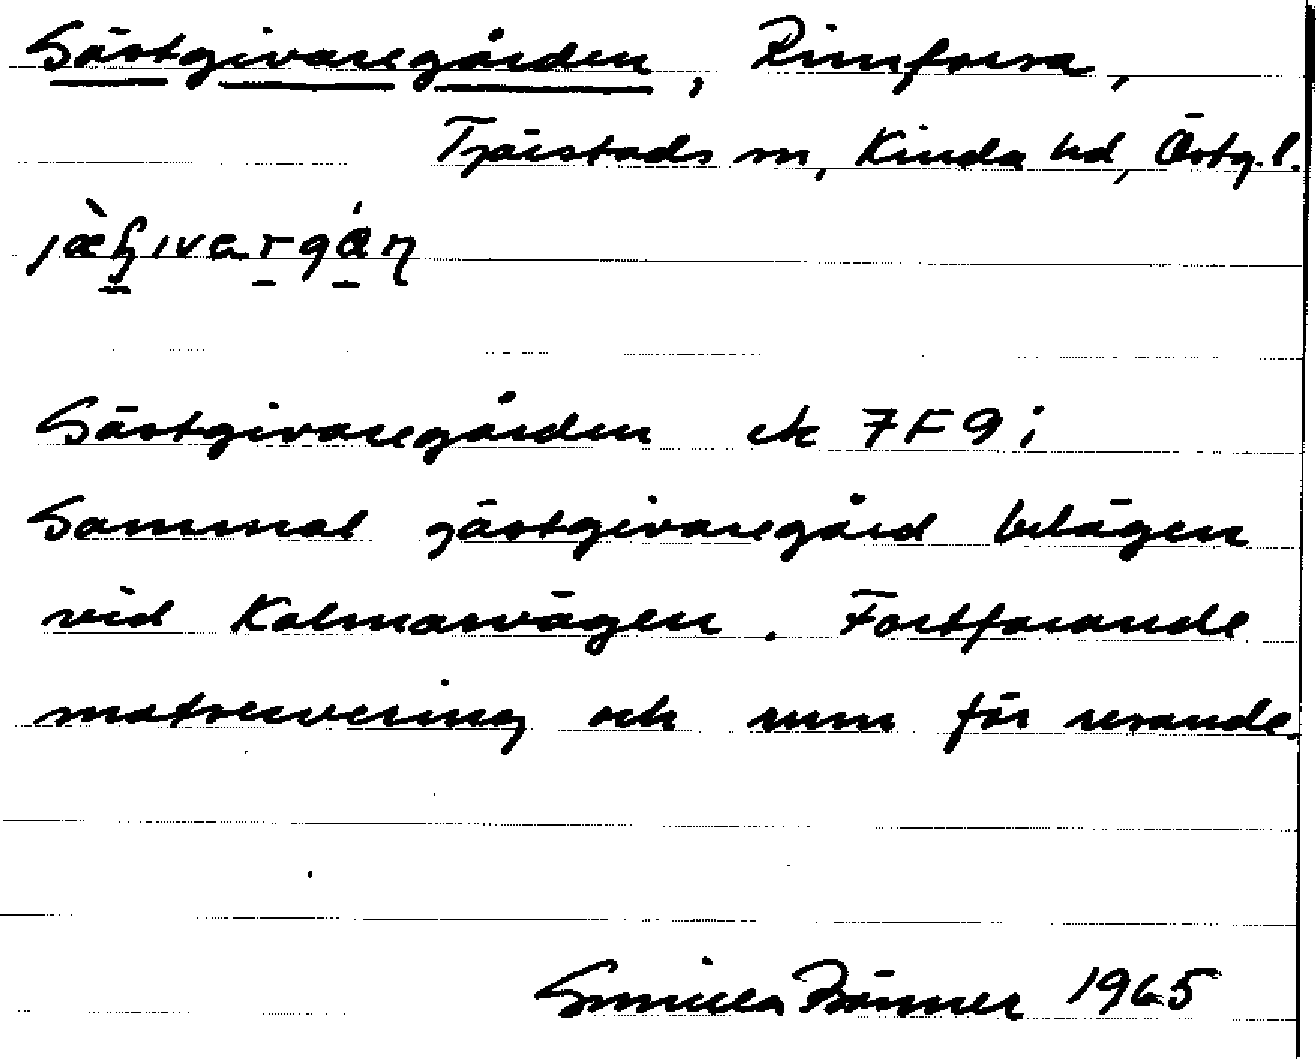 Gästgivaregården, Rimforsa,
Tjärstads sn, Kinda hd, Östg.l.
Gästgivaregården ek 7F9i
Gammal gästgivaregård belägen
vid Kalmarvägen. Fortfarande
matservering och rum för resande.
Gunilla 1965